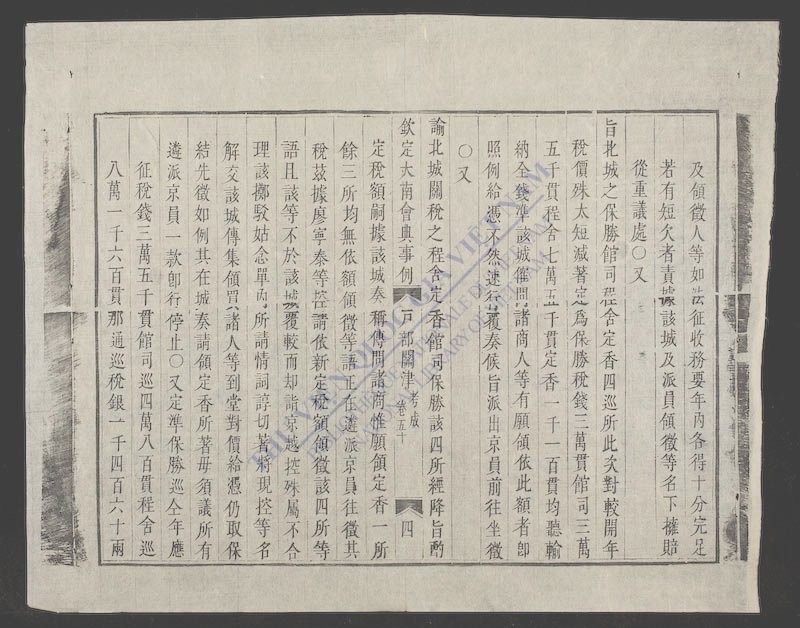 及領徵人等如法征收務要年內各得十分完足
若有短欠者責據該城及派員領徵等名下攤賠
從重議處○又
旨北城之保勝館司程舍定香四巡所此次對較開年
稅價殊太短減著定為保勝稅錢三萬貫館司三萬
五千貫程舍七萬五千貫定香一千一百貫均聽輸
納全錢準該城催問諸商人等有願領依此額者卽
照例給憑不然速行覆奏候旨派出京員前往坐徵
○又
諭北城關稅之程舍定香館司保勝該四所經降旨酌
欽定大南會典事例 戶部關津 考成 卷五十 四
定稅額嗣據該城奏稱傳問諸商惟願領定香一所
餘三所均無依額領徵等語正在遴派京員往徵其
稅茲據廖寧泰等控請依新定稅額領徵該四所等
語且該等不於該城覆較而却詣京越控殊屬不合
理該擲駁姑念單內所請情詞諄切著將現控等名
解交該城傳集領買諸人等到堂對價給憑仍取保
結先徵如例其在城奏請領定香所著毋須議所有
遴派京員一款卽行停止○又定準保勝巡仝年應
征稅錢三萬五千貫館司巡四萬八百貫程舍巡
八萬一千六百貫那通巡稅銀一千四百六十兩
THƯ VIỆN QUỐC GIA VIỆT NAM
LIBRARY OF VIETNAM